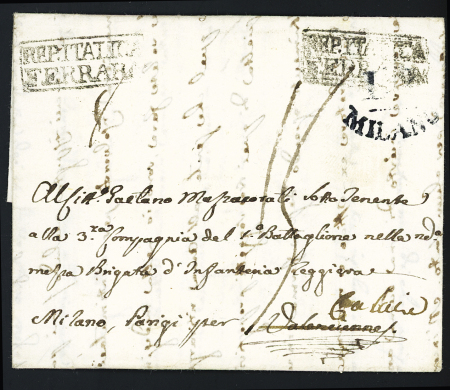 REP.ITALICA
FERRARA
REP.ITALICA
FERRARA
L
MILANO
Al Citt.o Gaetano Massacorati Sotto Tenente
alla 3.za Compagnia del 1.o Battaglione nella
mezza Brigata d'Infanteria Leggiera
Calais
Milano, Parigi per Valenciennes